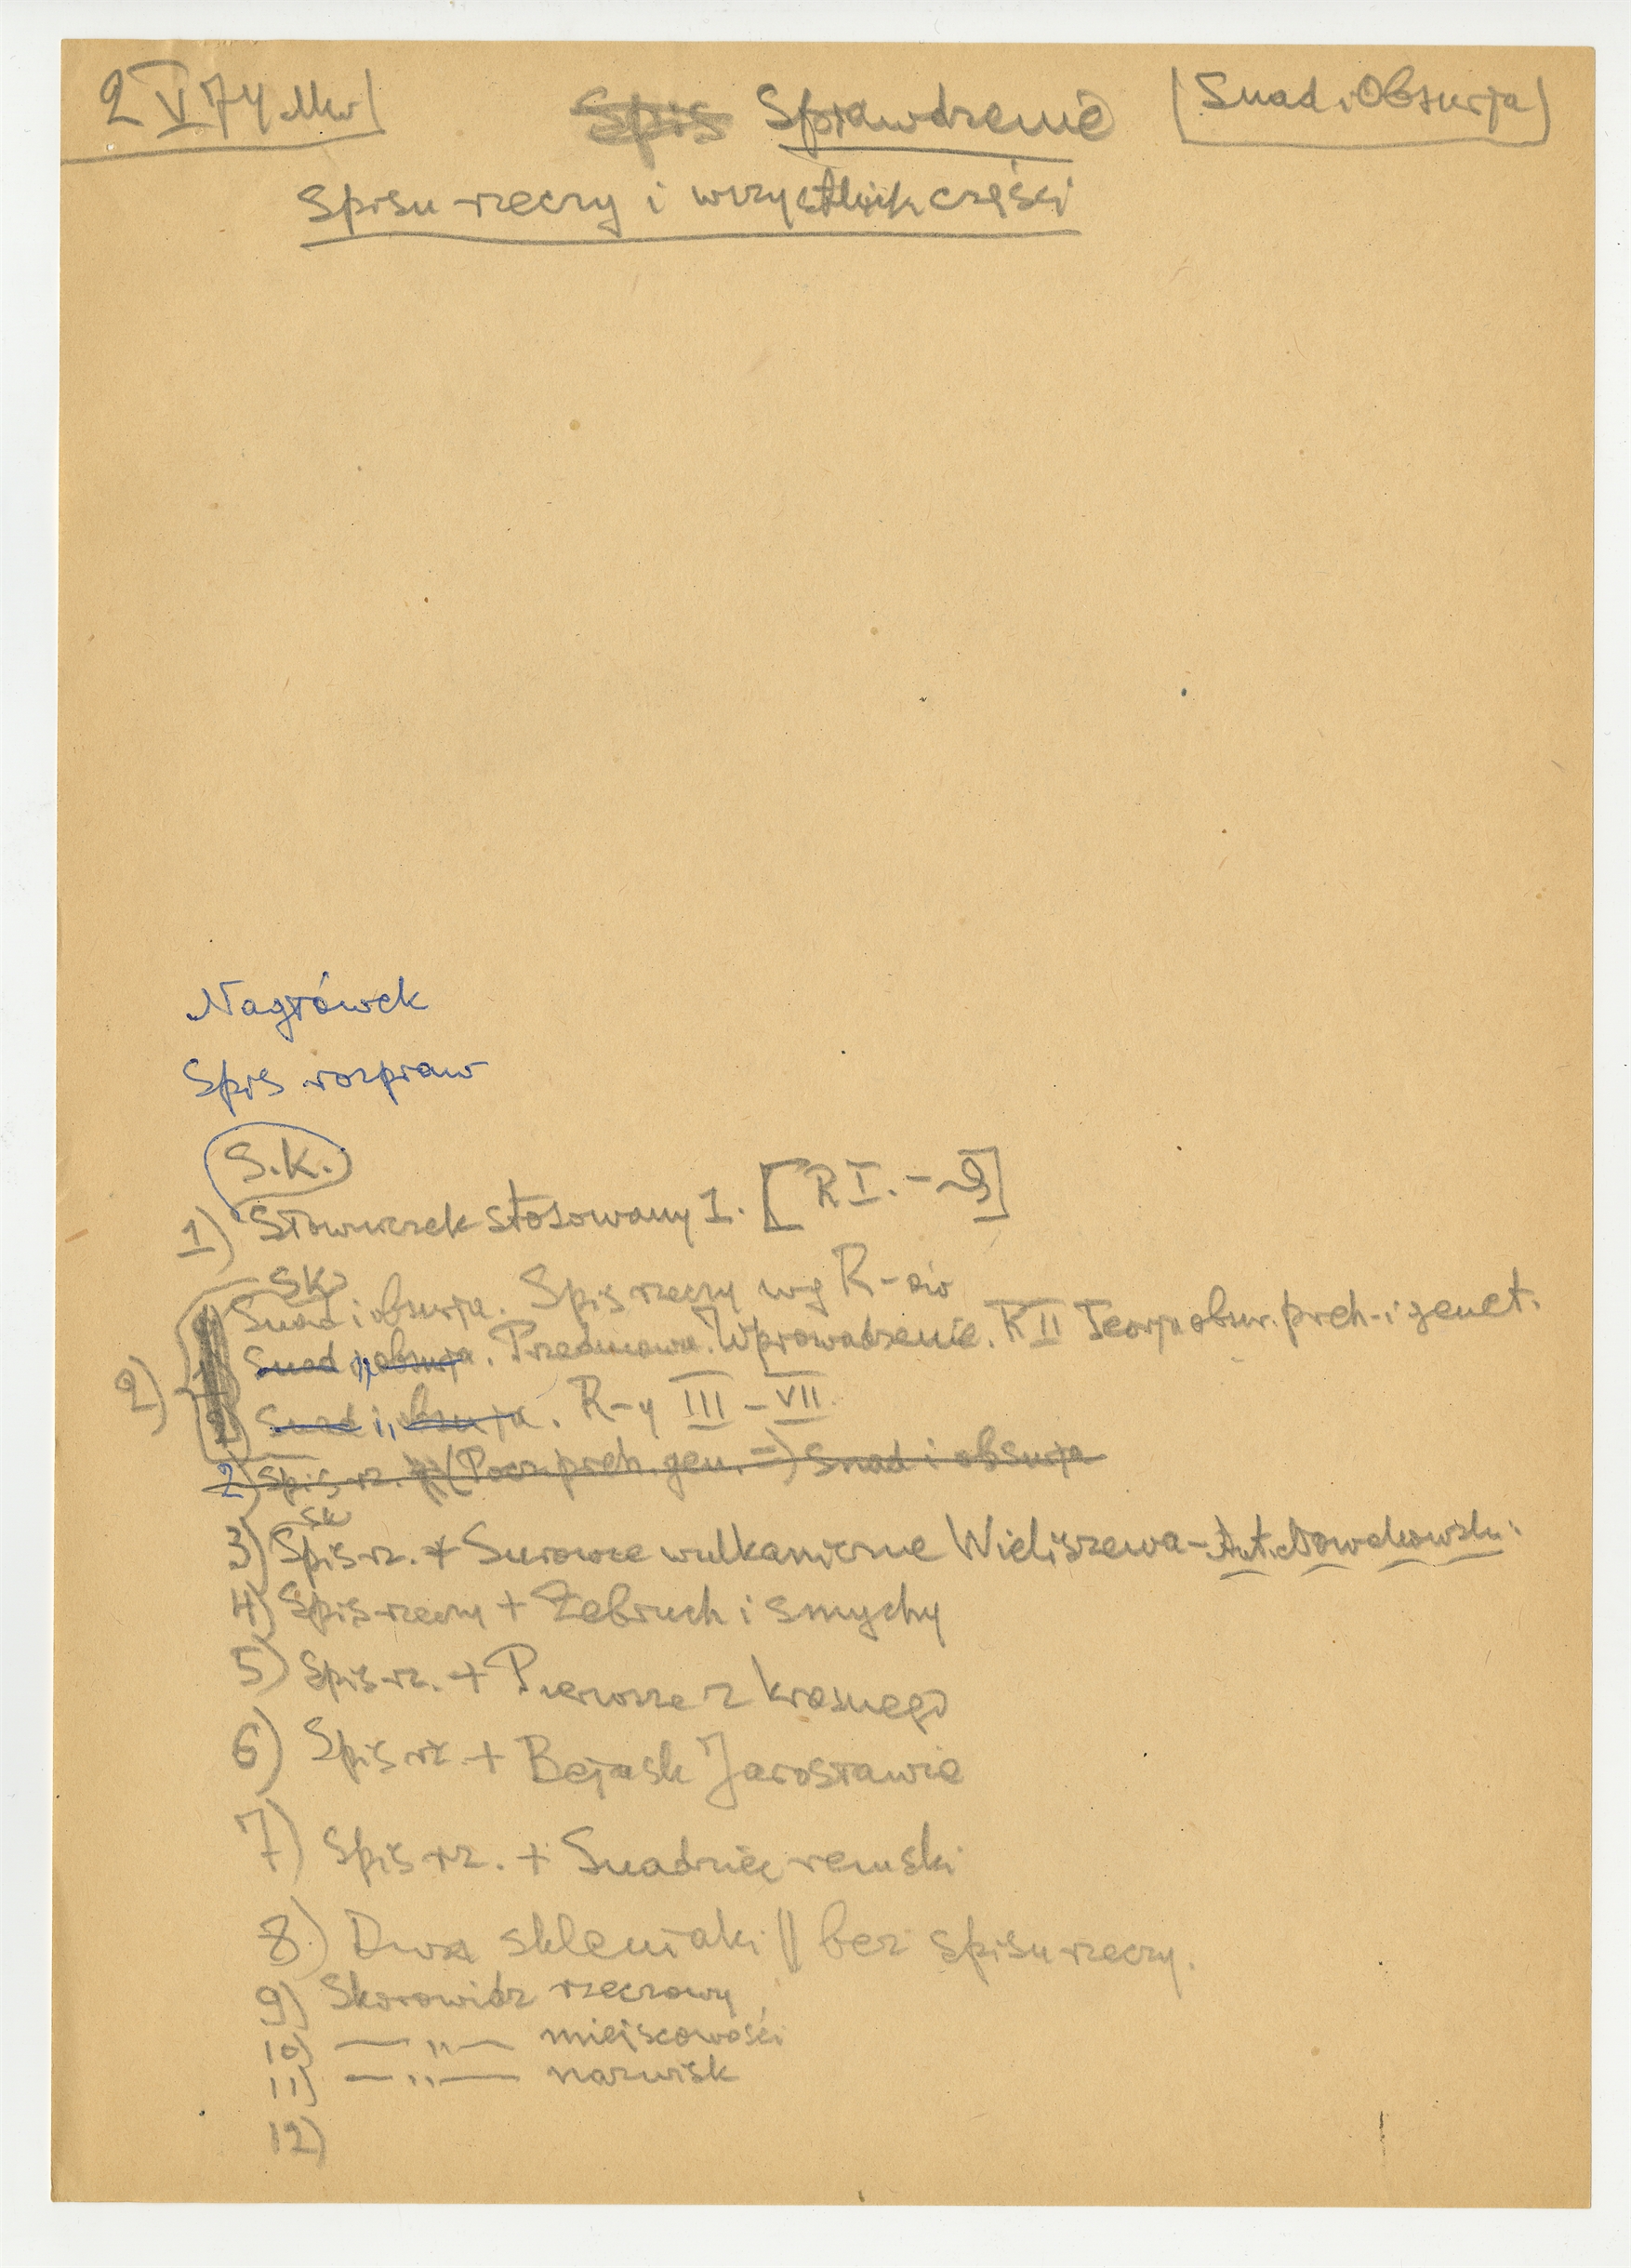 2 V 74 Mw
Spis Sprawdzenie
[Snad i Obsurja]
Spisu rzeczy i wszystkich części
Nagłówek
Spis rozpraw
S.K.
1) Słowniczek stosowany I. [R I. - ]
SK
Snad i obsurja. Spis rzeczy wg R-ów
2) 1) Snad i obsurja. Przedmowa. Wprowadzenie. R II Teorja obsur. preh. i genet.
2) Snad i obsurja. R-y III - VII.
2) Spis rz. (Pocz. preh. gen. =) Snad i obsurja
SK
3) Spis rz. + Surowce wulkaniczne Wieliszewa - Ant. Nowakowski
4) Spis rzeczy + Żebruch i smychy
5) Spis rz. + Pierwsze z krasnego
6) Spis rz. + Bejask Jarosławie
7) Spis rz. + Snadzieę remski
8) Dwa skleniaki || bez spisu rzeczy.
9) Skorowidz rzeczowy
10) — " — miejscowości
11) — " — nazwisk
12)